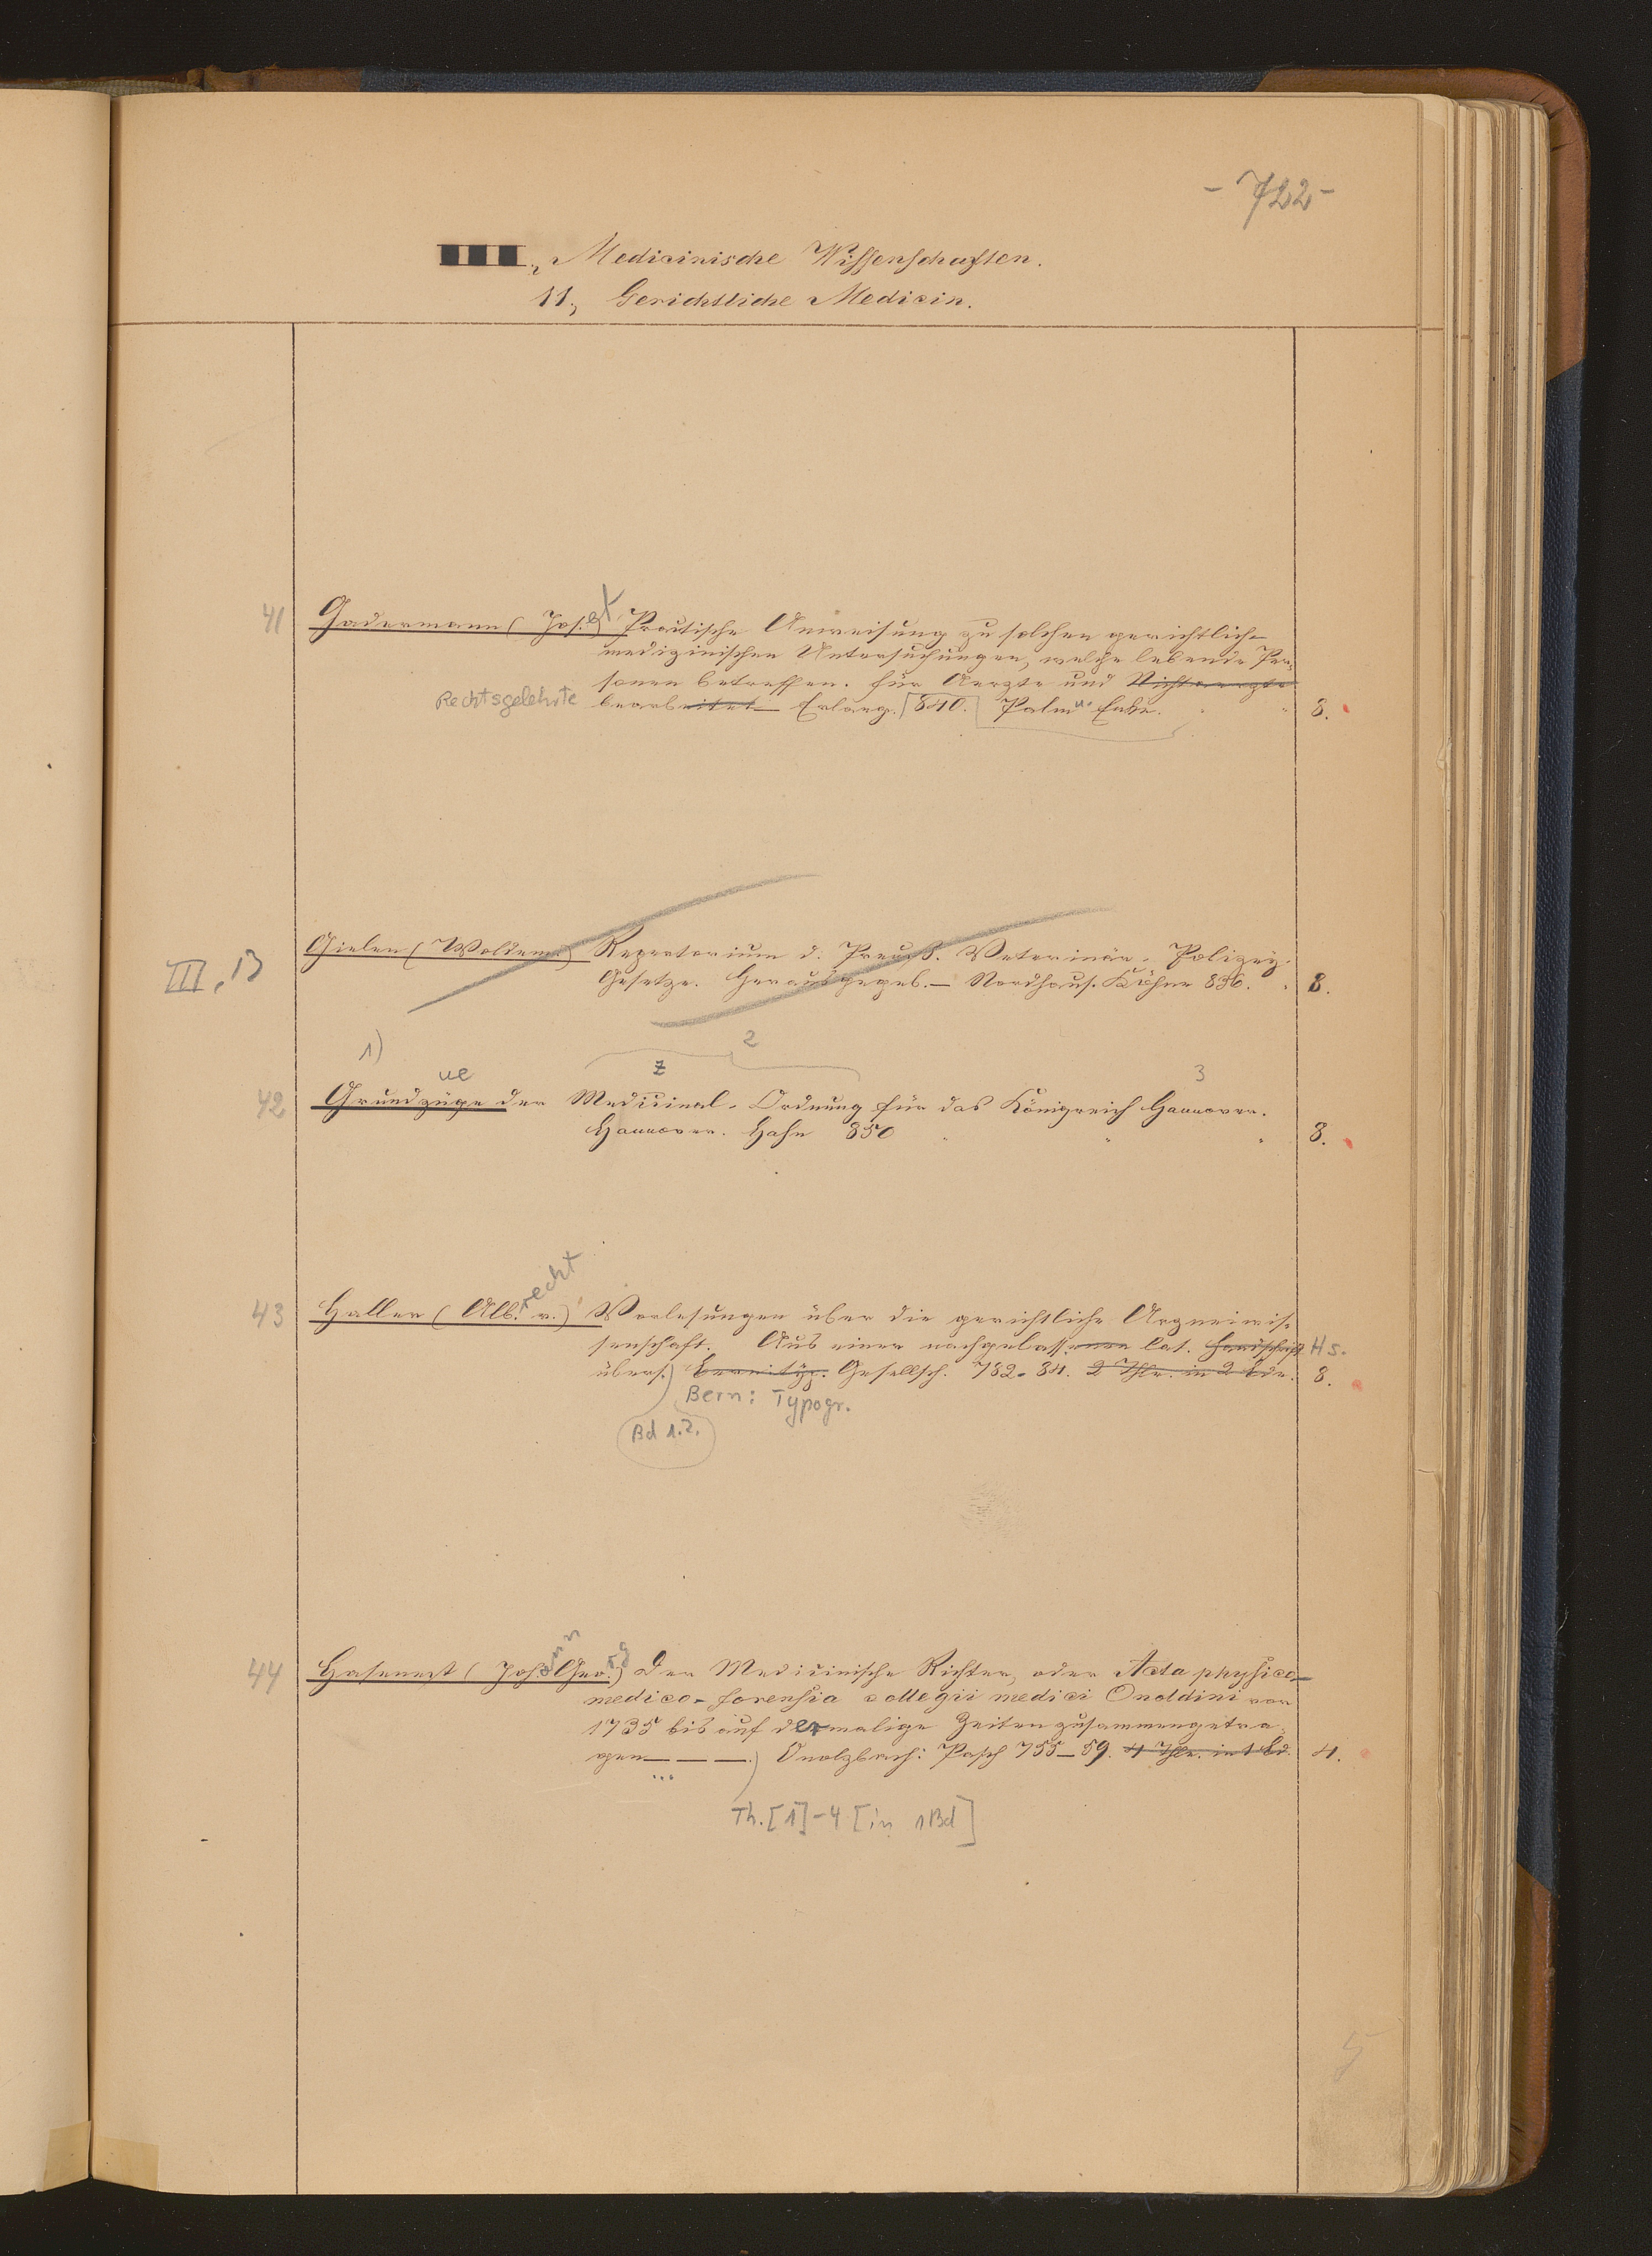 - 722 -
III., Medicinische Wissenschaften.
11., Gerichtliche Medicin.
41 Gadermann (Jos.) ef Practische Anweisung zu solchen gerichtlich-
medizinischen Untersuchungen, welche lebende Per-
sonen betreffen. für Aerzte und Nichtaerzte
Rechtsgelehrte bearbeitet — Erlang. 840. Palm u. Enke. 8.
III, 13 Gielen (Woldem.) Repertorium d. Preuß. Veterinär-Polizey-
Gesetze. Herausgegeb. — Nordhaus. Köhne 836. 8.
1) 2
ue z 3
42 Grundzüge der Medicinal-Ordnung für das Königreich Hannover.
Hannover. Hahn 850 8.
recht
43 Haller (Alb. v.) Vorlesungen über die gerichtliche Arzneiwis-
senschaft. Aus einer nachgelassenen lat. Handschrift Hs.
übers.) Bern typ. Gesellsch. 782-84. 2 Thle. in 2 Bde. 8.
Bern: Typogr.
Bd 1.2.
44 Hasenest (Joh. Geo.) ann rg Der Medicinische Richter, oder Acta physico-
medico-forensia collegii medici Onoldini von
1735 bis auf dermalige Zeiten zusammengetra-
gen — — —.) Onolzbach: Posch 755-59. 4 Thle. in 1 Bd. 4.
...
Th. [1]-4 [in 1 Bd]
5